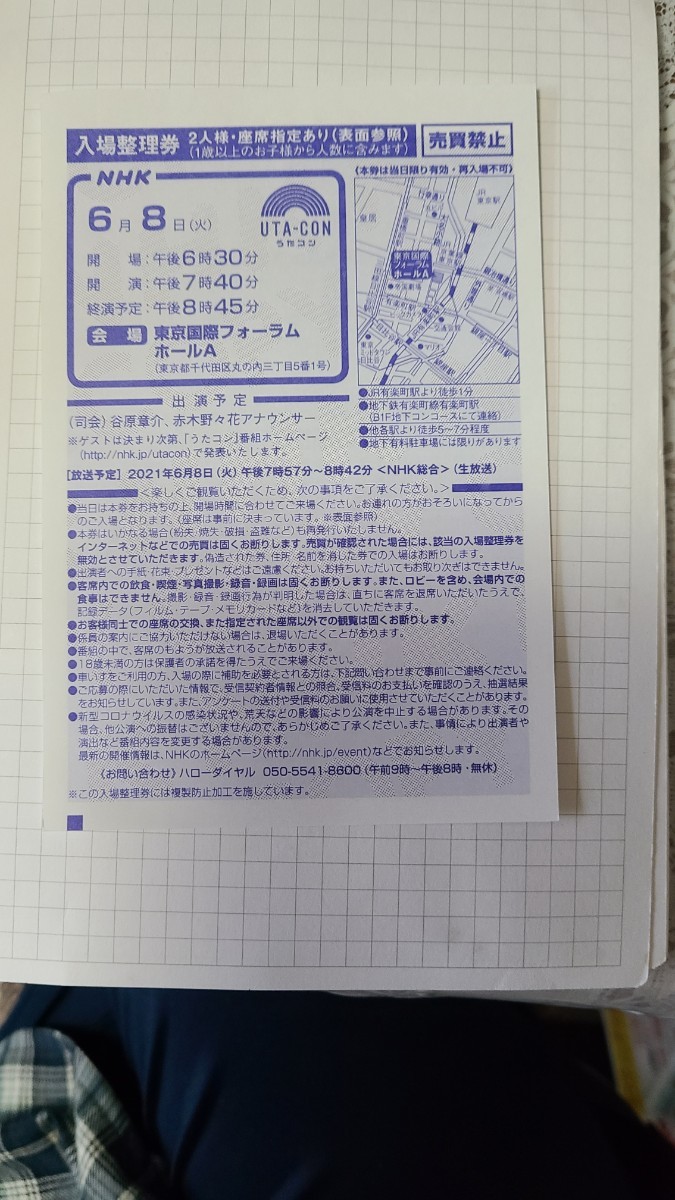 入場整理券 2人様・座席指定あり(表面参照)
(1歳以上のお子様から人数に含みます)
売買禁止
(本券は当日限り有効・再入場不可)
NHK
6月8日(火)
UTA-CON
うたコン
開 場:午後6時30分
開 演:午後7時40分
終演予定:午後8時45分
会 場 東京国際フォーラム
ホールA
(東京都千代田区丸の内三丁目5番1号)
JR
東京駅
皇居
東京国際
フォーラム
ホールA
●JR有楽町駅より徒歩1分
●地下鉄有楽町線有楽町駅
(B1F地下コンコースにて連絡)
●他各駅より徒歩5~7分程度
●地下有料駐車場には限りがあります
出演予定
(司会)谷原章介、赤木野々花アナウンサー
※ゲストは決まり次第、「うたコン」番組ホームページ
(http://nhk.jp/utacon)で発表いたします。
[放送予定] 2021年6月8日(火)午後7時57分~8時42分 <NHK総合>(生放送)
<楽しくご観覧いただくため、次の事項をご了承ください。>
●当日は本券をお持ちの上、開場時間に合わせてご来場ください。お連れの方がおそろいになってから
のご入場となります。(座席は事前に決まっています。※表面参照)
●本券はいかなる場合(紛失・焼失・破損・盗難など)も再発行いたしません。
インターネットなどでの売買は固くお断りします。売買が確認された場合には、該当の入場整理券を
無効とさせていただきます。偽造された券、住所・名前を消した券での入場はお断りします。
●出演者への手紙・花束・プレゼントなどはご遠慮ください。お持ちいただいてもお取り次ぎはできません。
●客席内での飲食・喫煙・写真撮影・録音・録画は固くお断りします。また、ロビーを含め、会場内での
食事はできません。撮影・録音・録画行為が判明した場合は、直ちに客席を退席いただいたうえで、
記録データ(フィルム・テープ・メモリカードなど)を消去していただきます。
●お客様同士での座席の交換、また指定された座席以外での観覧は固くお断りします。
●係員の案内にご協力いただけない場合は、退場いただくことがあります。
●番組の中で、客席のもようが放送されることがあります。
●18歳未満の方は保護者の承諾を得たうえでご来場ください。
●車いすをご利用の方、入場の際に補助を必要とされる方は、下記問い合わせまで事前にご連絡ください。
●ご応募の際にいただいた情報で、受信契約者情報との照合、受信料のお支払いを確認のうえ、抽選結果
をお知らせしています。また、アンケートの送付や受信料のお願いに使用させていただくことがあります。
●新型コロナウイルスの感染状況や、荒天などの影響により公演を中止する場合があります。その
場合、他公演への振替はございませんので、あらかじめご了承ください。また、事情により出演者や
演出など番組内容を変更する場合があります。
最新の開催情報は、NHKのホームページ(http://nhk.jp/event)などでお知らせします。
《お問い合わせ》ハローダイヤル 050-5541-8600(午前9時~午後8時・無休)
※この入場整理券には複製防止加工を施しています。